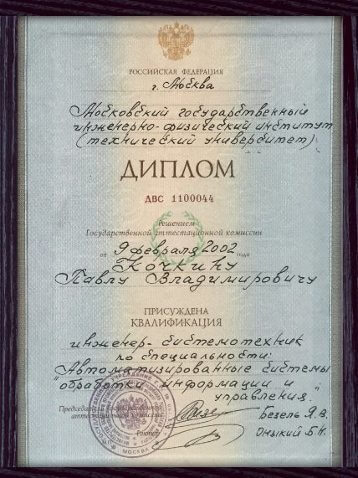 РОССИЙСКАЯ ФЕДЕРАЦИЯ
г. Москва
Московский государственный
инженерно-физический институт
(технический университет)
ДИПЛОМ
ДВС 1100044
Решением
Государственной аттестационной комиссии
от 9 февраля 2002 года
Кочкину
Павлу Владимировичу
ПРИСУЖДЕНА
КВАЛИФИКАЦИЯ
инженер-системотехник
по специальности:
"Автоматизированные системы
обработки информации и
управления."
Председатель Государственной
аттестационной комиссии
Безель Я.В.
Ректор
Оныкий Б.Н.
МОСКВА